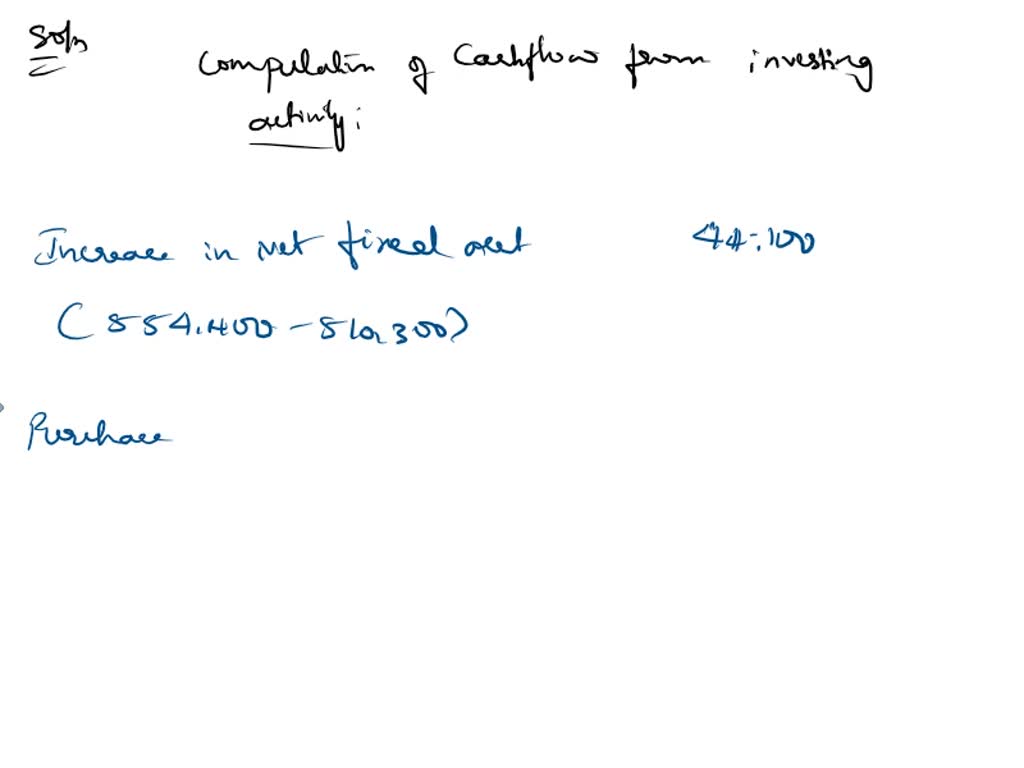 Soln
Computation of Cashflow from investing
activity:
Increase in net fixed asset 44,100
(554,400 - 510,300)
Purchase